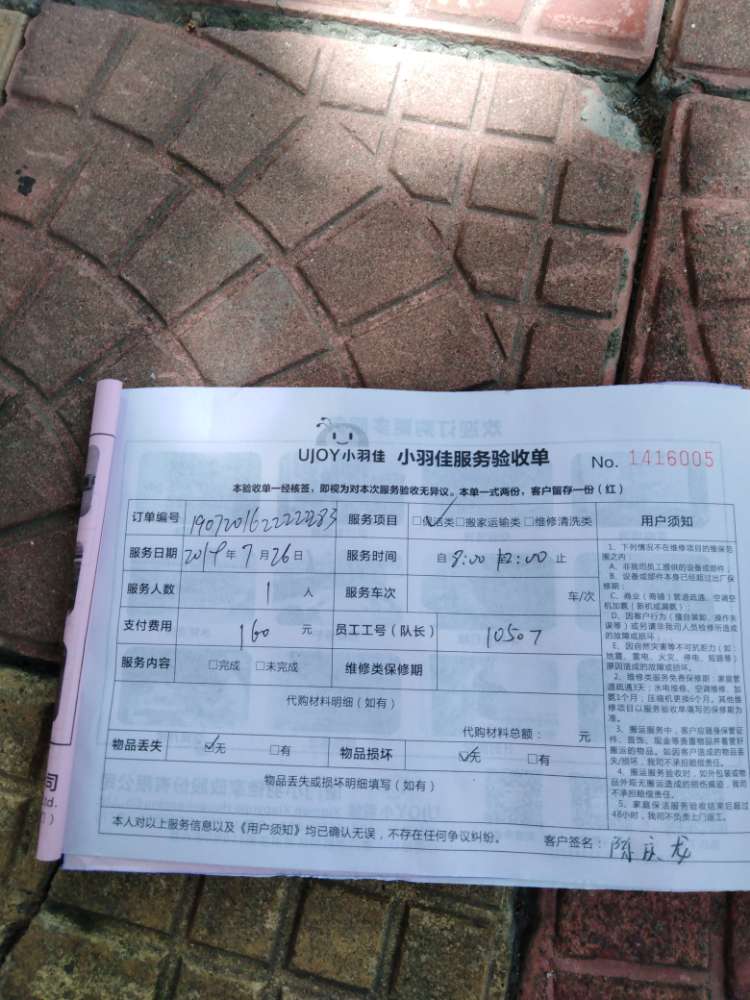 UJOY小羽佳 小羽佳服务验收单 No. 1416005
本验收单一经核签，即视为对本次服务验收无异议。本单一式两份，客户留存一份（红）
订单编号 服务项目 □保洁类□搬家运输类□维修清洗类 用户须知
服务日期 2019年7月26日 服务时间 自8:00 12:00止
服务人数 1 人 服务车次 车/次
支付费用 160 元 员工工号（队长） 10507
服务内容 □完成 □未完成 维修类保修期
代购材料明细（如有）
代购材料总额： 元
物品丢失 ☑无 □有 物品损坏 ☑无 □有
物品丢失或损坏明细填写（如有）
本人对以上服务信息以及《用户须知》均已确认无误，不存在任何争议纠纷。 客户签名：陈庆龙
1、下列情况不在维修项目的维保范围之内
A、非我司员工提供的设备或部件；
B、设备或部件本身已经超过出厂保修期；
C、商业（商铺）管道疏通、空调空机加氟（新机或漏氟）；
D、因客户行为（擅自装卸、操作失误等）或另请非我司人员检修所造成的故障或损坏；
E、因自然灾害等不可抗拒力（如：地震、雷电、火灾、停电、短路等）原因造成的故障或损坏。
2、维修类服务免费保修期：家庭管道疏通3天；水电维修、空调维修、加氨1个月，压缩机更换6个月。其他维修项目以服务验收单填写的保修期为准。
3、搬运服务中，客户应随身保管证件、首饰、现金等贵重物品并看管好搬运的物品。如因客户造成的物品丢失/损坏，我司不承担赔偿责任。
4、搬运服务验收时，如外包装或物品外观无搬运造成的损伤痕迹，我司不承担赔偿责任。
5、家庭保洁服务验收结束后超过48小时，我司不负责上门返工。